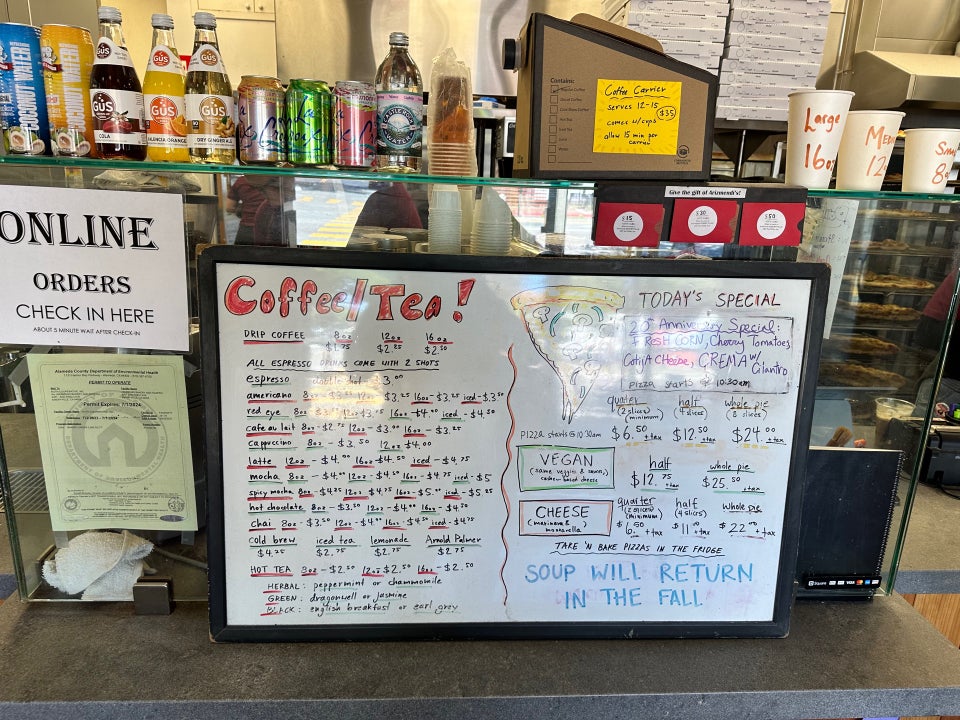 COCONUT WATER
COCONUT WATER
GÜS
COLA
GÜS
VALENCIA ORANGE
GÜS
DRY GINGER ALE
Contains:
Regular Coffee
Decaf Coffee
Hot Tea
Iced Tea
Water
Coffee Carrier
serves 12-15
comes w/cups
$35
allow 15 min per carrier
Large
16oz
Me
12
Sm
8
Give the gift of Arizmendi's!
$15
$50
ONLINE
ORDERS
CHECK IN HERE
ABOUT 5 MINUTE WAIT AFTER CHECK-IN
Alameda County Department of Environmental Health
PERMIT TO OPERATE
Permit Expires: 7/1/2024
Coffee/Tea!
DRIP COFFEE 8oz 12oz 16oz
$1.75 $2.25 $2.50
ALL ESPRESSO DRINKS COME WITH 2 SHOTS
espresso double shot $3.00
americano 8oz 12oz $3.25 16oz $3.25 iced -$3.50
red eye 8oz 12oz $3.75 16oz -$4.00 iced - $4.50
cafe au lait 8oz -$2.75 12oz - $3.00 16oz - $3.25
cappuccino 8oz - $3.50 12oz $4.00
latte 12oz - $4.00 16oz - $4.50 iced - $4.75
mocha 8oz - $4.00 12oz - $4.50 16oz - $4.75 iced - $5
spicy mocha 8oz -$4.25 12oz - $4.75 16oz - $5.00 iced - $5.25
hot chocolate 8oz - $3.50 12oz - $4.00 16oz - $4.50
chai 8oz - $3.50 12oz - $4.00 16oz - $4.50 iced - $4.75
cold brew iced tea lemonade Arnold Palmer
$4.25 $2.75 $2.75 $2.75
HOT TEA 8oz - $2.50 12oz $2.50 16oz - $2.50
HERBAL: peppermint or chammomile
GREEN: dragonwell or jasmine
BLACK: english breakfast or earl grey
TODAY'S SPECIAL
20th Anniversary Special:
FRESH CORN, Cherry Tomatoes
Cotija CHEESE, CREMA w/
Cilantro
PIZZA starts @ 10:30am
PIZZA starts @ 10:30am
quarter half whole pie
(2 slices) (4 slices) (8 slices)
(minimum)
$6.50 +tax $12.50 +tax $24.00 +tax
VEGAN
(same veggies & sauces,
cashew-based cheese)
half whole pie
$12.75 +tax $25.50 +tax
CHEESE
(marinara &
mozzarella)
quarter half whole pie
(2 slices) (4 slices)
(minimum)
$6.50 +tax $11.00 +tax $22.00 +tax
TAKE 'N BAKE PIZZAS IN THE FRIDGE
SOUP WILL RETURN
IN THE FALL
Square VISA